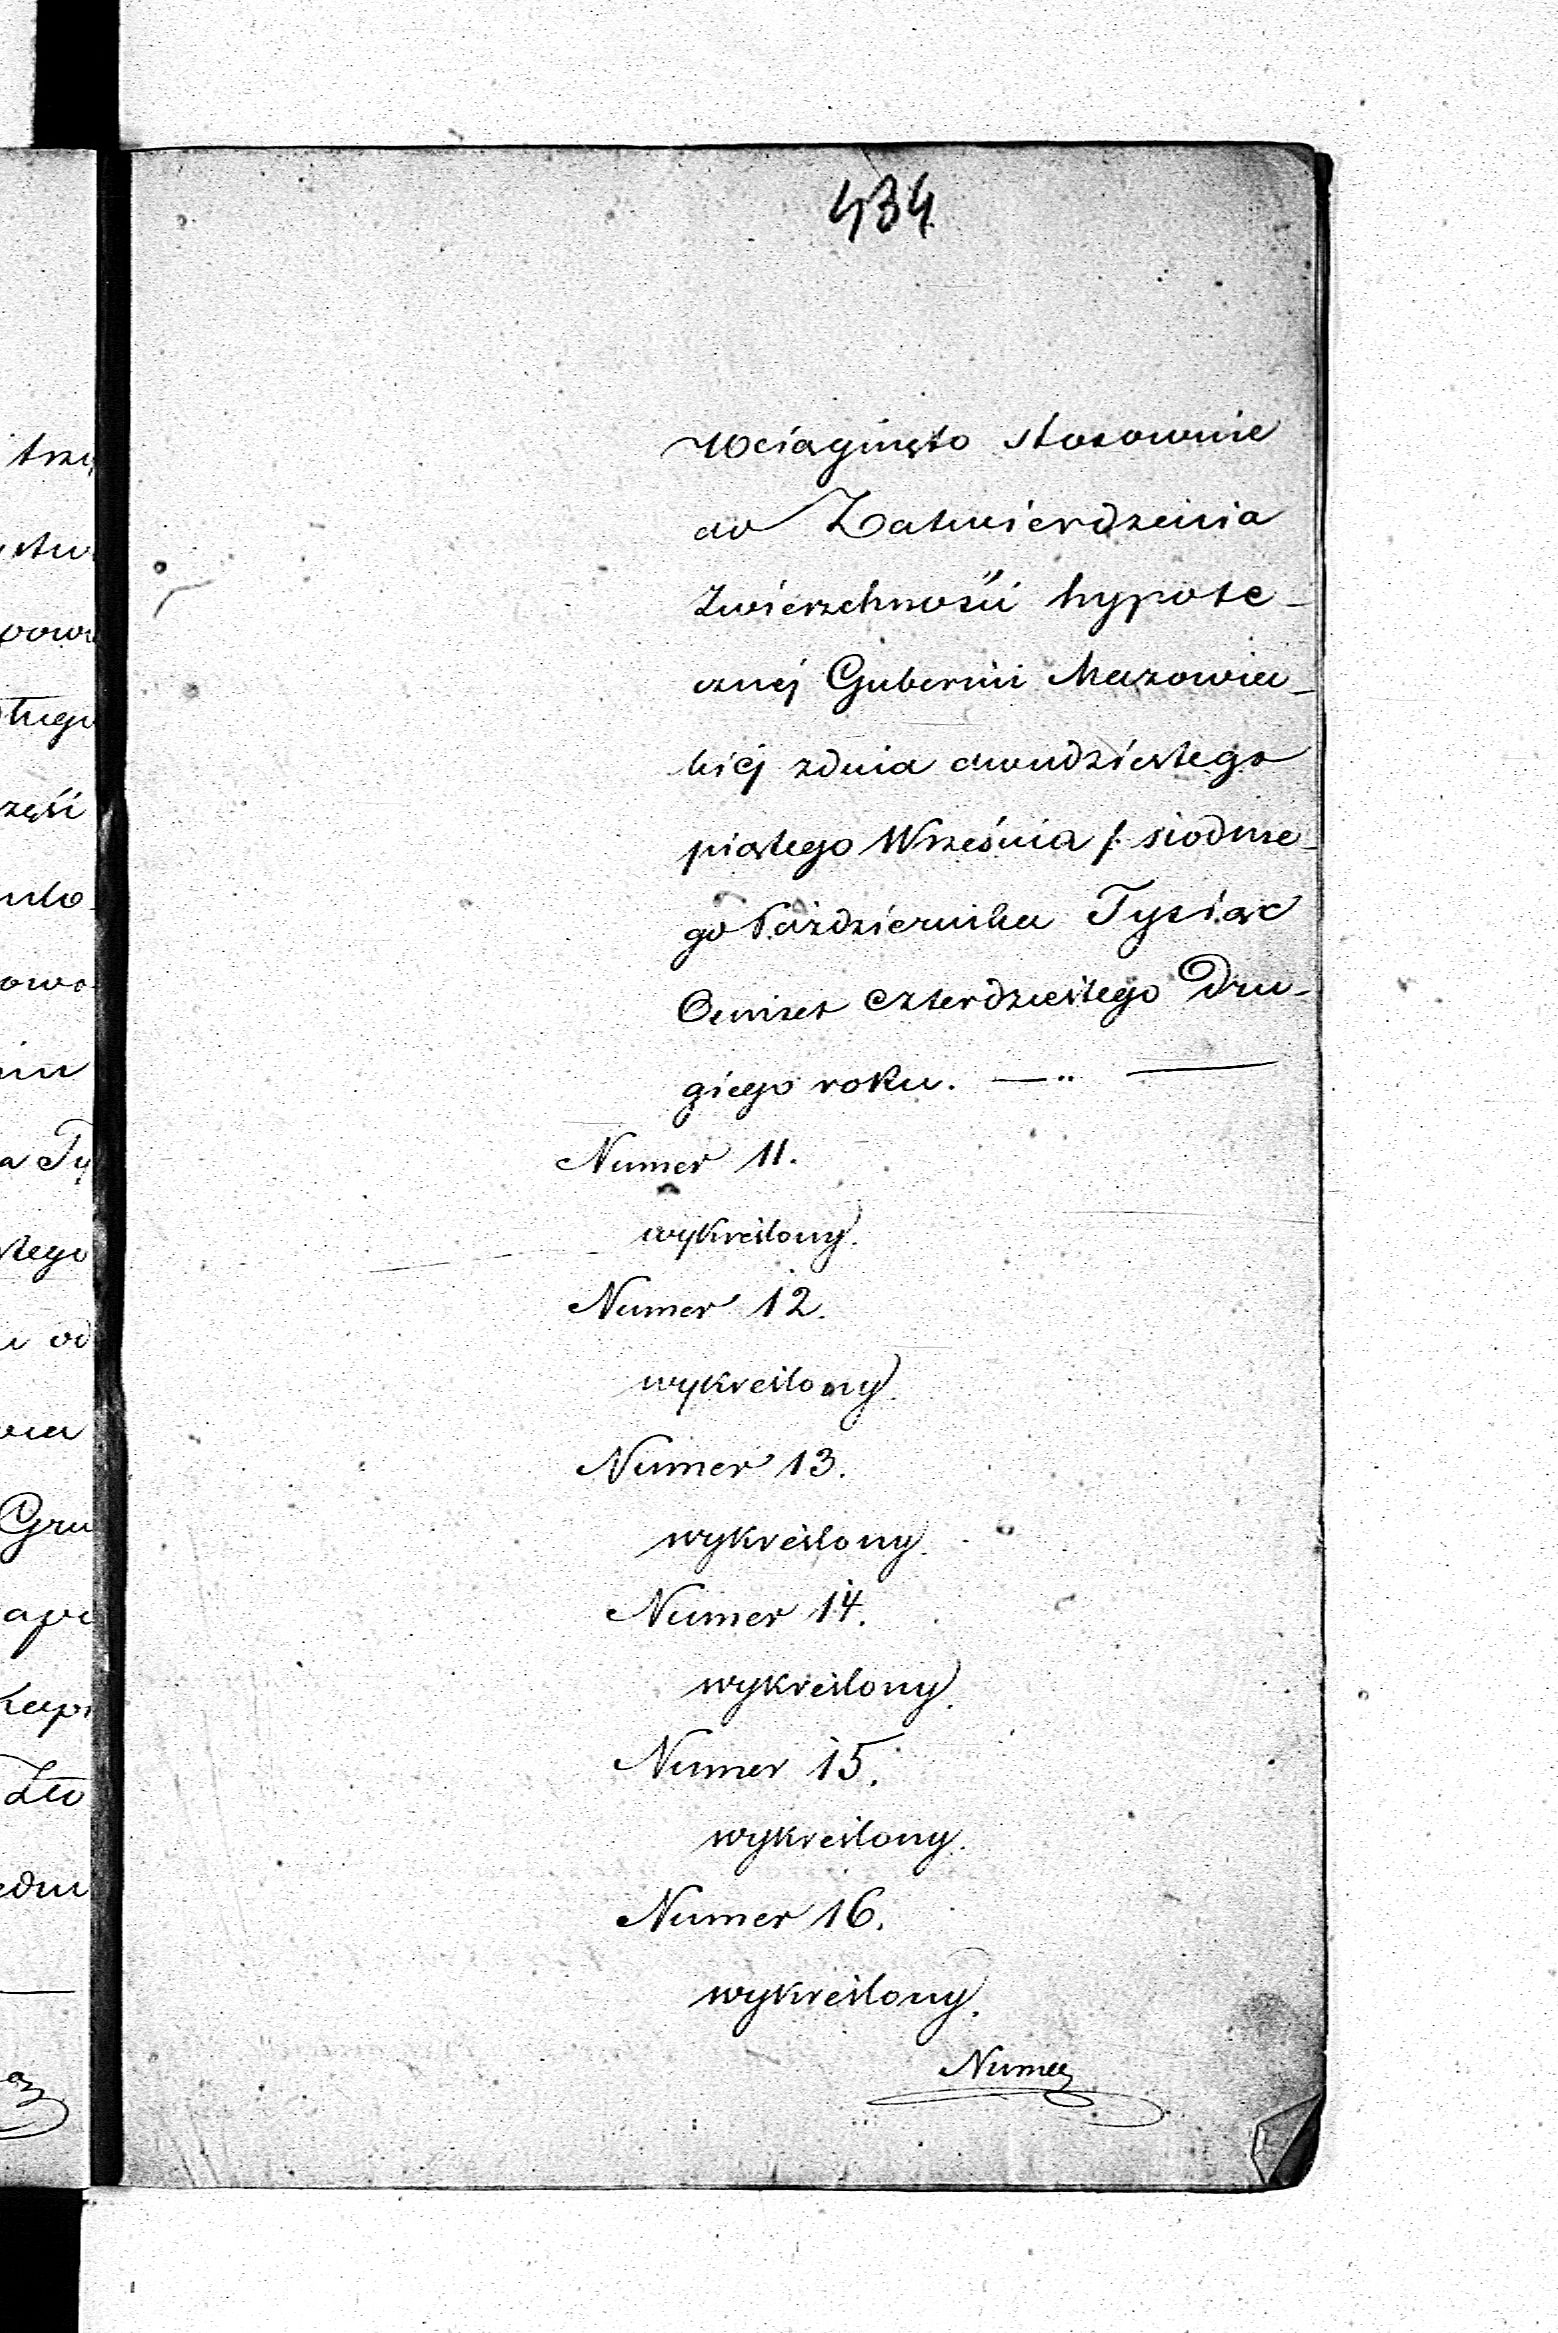 434
Wciągnięto stosownie
do Zatwierdzenia
Zwierzchności hypote-
cznej Gubernii Mazowiec-
kiej zdnia dwudziestego
piątego Września /: siódme-
go Października Tysiąc
Ośmset czterdziestego Dru-
giego roku. —„ —
Numer 11.
wykreślony.
Numer 12.
wykreślony.
Numer 13.
wykreślony.
Numer 14.
wykreślony.
Numer 15.
wykreślony.
Numer 16.
wykreślony.
Numer